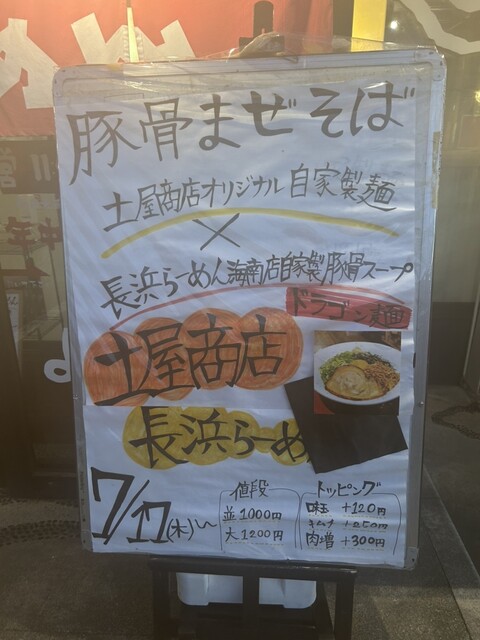 豚骨まぜそば
土屋商店オリジナル自家製麺
×
長浜らーめん海南店自家製豚骨スープ
ドラゴン麺
土屋商店
長浜らーめ
7/17(木)〜
値段
並1000円
大1200円
トッピング
味玉 +120円
キムチ +250円
肉増 +300円